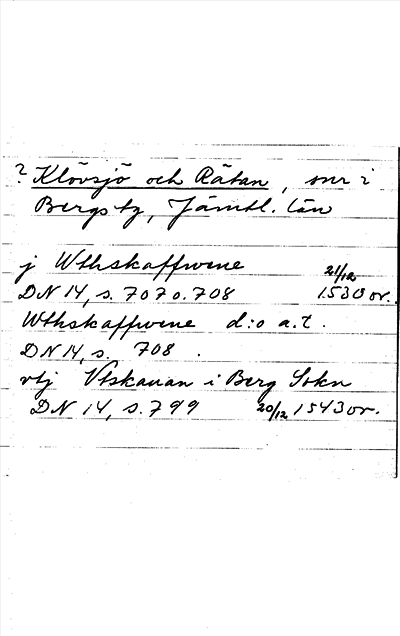 ? Klövsjö och Rätan, snr i
Bergs tg, Jämtl. län
j Wthskaffwene 21/12
DN 14, s. 707 o. 708 1530 or.
Wthskaffwene d:o a.t.
DN 14, s. 708.
vtj Vtskauan i Berg Sokn
DN 14, s. 799 20/12 1543 or.